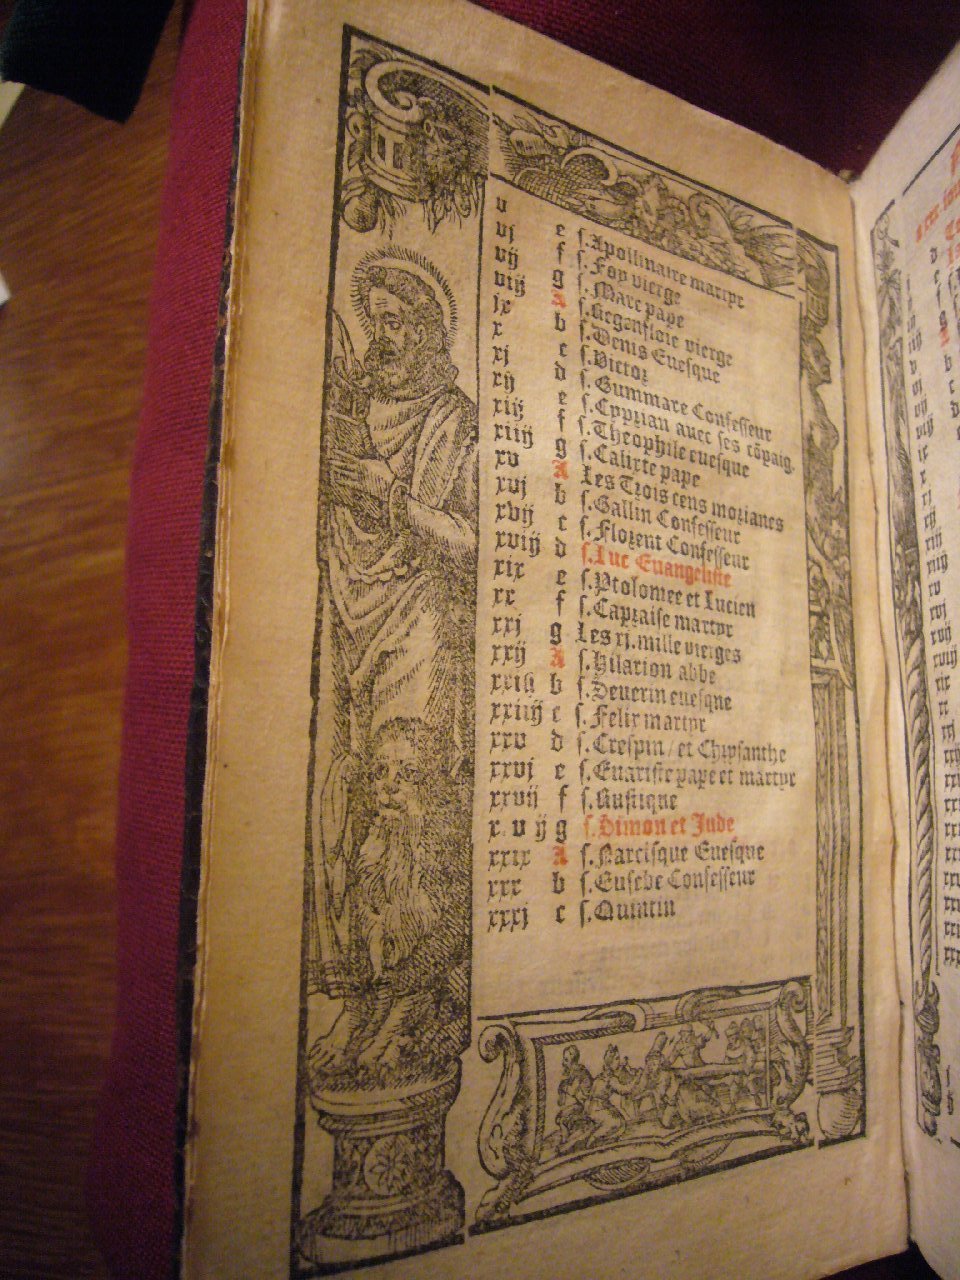 v e ſ. Apollinaire martyr
vj f ſ. Foy vierge
vij g ſ. Marc pape
viij A ſ. Regenfloie vierge
ix b ſ. Denis Eueſque
x c ſ. Victor
xj d ſ. Gummare Confeſſeur
xij e ſ. Cyprian auec ſes cõpaig.
xiij f ſ. Theophile eueſque
xiiij g ſ. Calixte pape
xv A Les Trois cens morianes
xvj b ſ. Gallin Confeſſeur
xvij c ſ. Florent Confeſſeur
xviij d ſ. Luc Euangeliſte
xix e ſ. Ptolomee et Lucien
xx f ſ. Capraiſe martyr
xxj g Les xj. mille vierges
xxij A ſ. Hilarion abbe
xxiij b ſ. Seuerin eueſque
xxiiij c ſ. Felix martyr
xxv d ſ. Creſpin / et Chryſanthe
xxvj e ſ. Euariſte pape et martyr
xxvij f ſ. Ruſtique
x. v ij g ſ. Simon et Jude
xxix A ſ. Narciſque Eueſque
xxx b ſ. Euſebe Confeſſeur
xxxj c ſ. Quintin